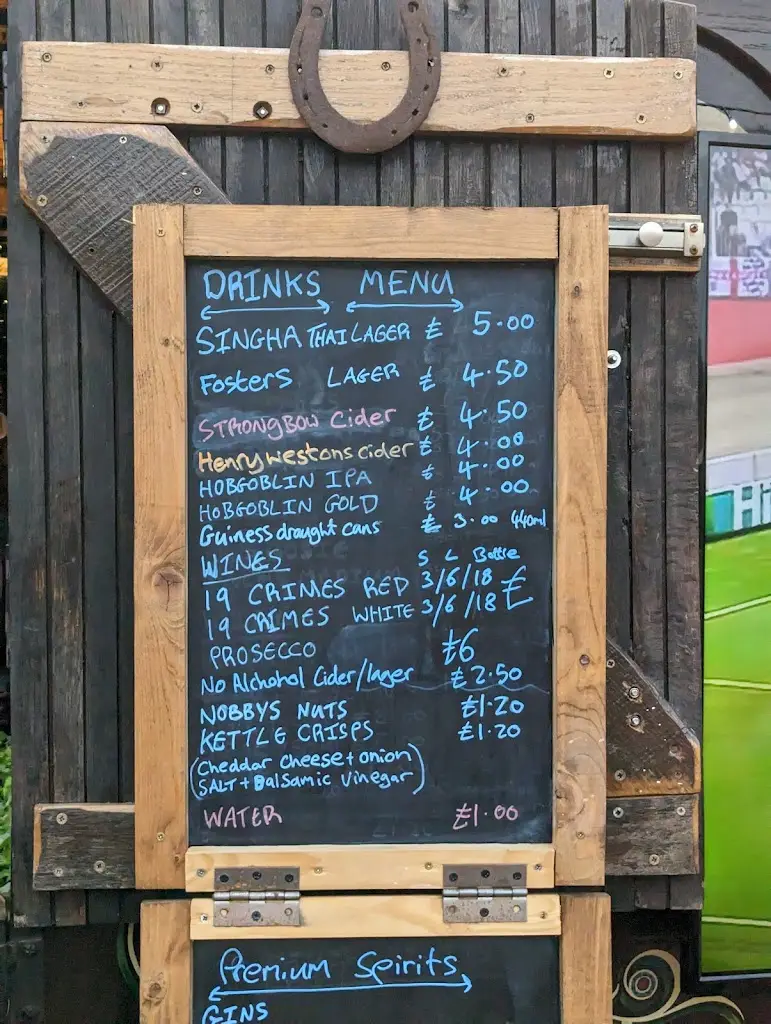 DRINKS MENU
SINGHA THAI LAGER £ 5.00
Fosters LAGER £ 4.50
STRONGBOW Cider £ 4.50
Henry westons cider £ 4.00
HOBGOBLIN IPA £ 4.00
HOBGOBLIN GOLD £ 4.00
Guiness draught cans £ 3.00 440ml
WINES S L Bottle
19 CRIMES RED 3/6/18 £
19 CRIMES WHITE 3/6/18
PROSECCO £6
No Alchohol Cider/lager £2.50
NOBBYS NUTS £1.20
KETTLE CRISPS £1.20
(Cheddar cheese + onion
SALT + Balsamic Vinegar)
WATER £1.00
Premium Spirits
GINS